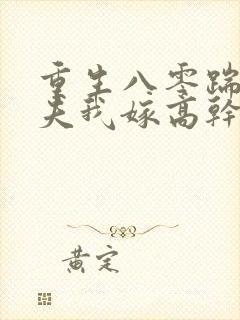 重生八零踹
夫我嫁高幹
黄定